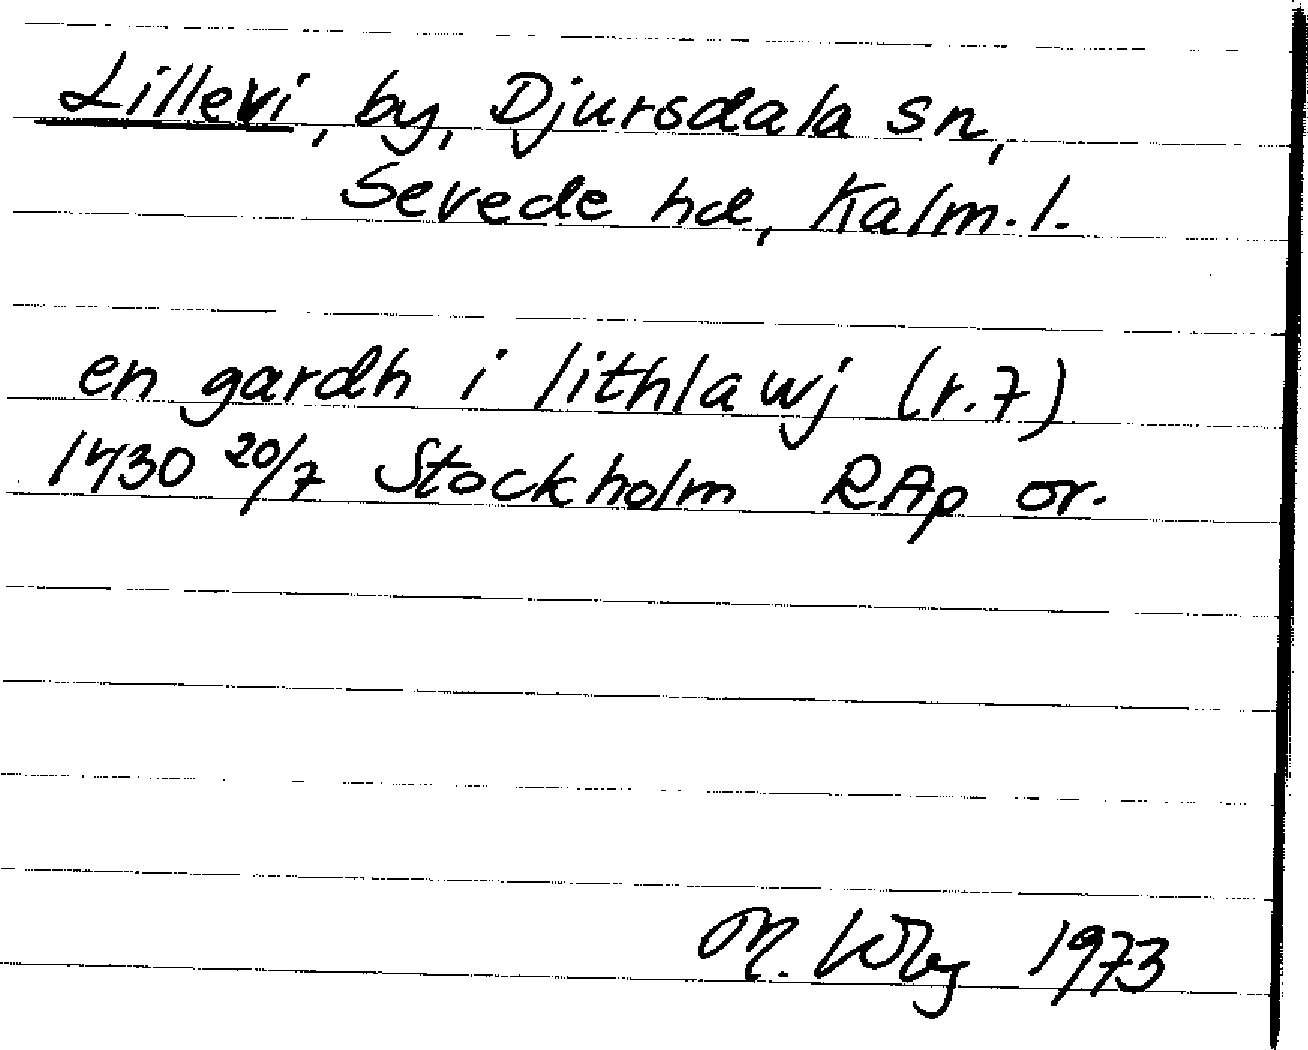 Lillevi, by, Djursdala sn,
Sevede hd, Kalm. l.
en gardh i lithlawj (r. 7)
1430 20/7 Stockholm RAp or.
M. Wby 1973